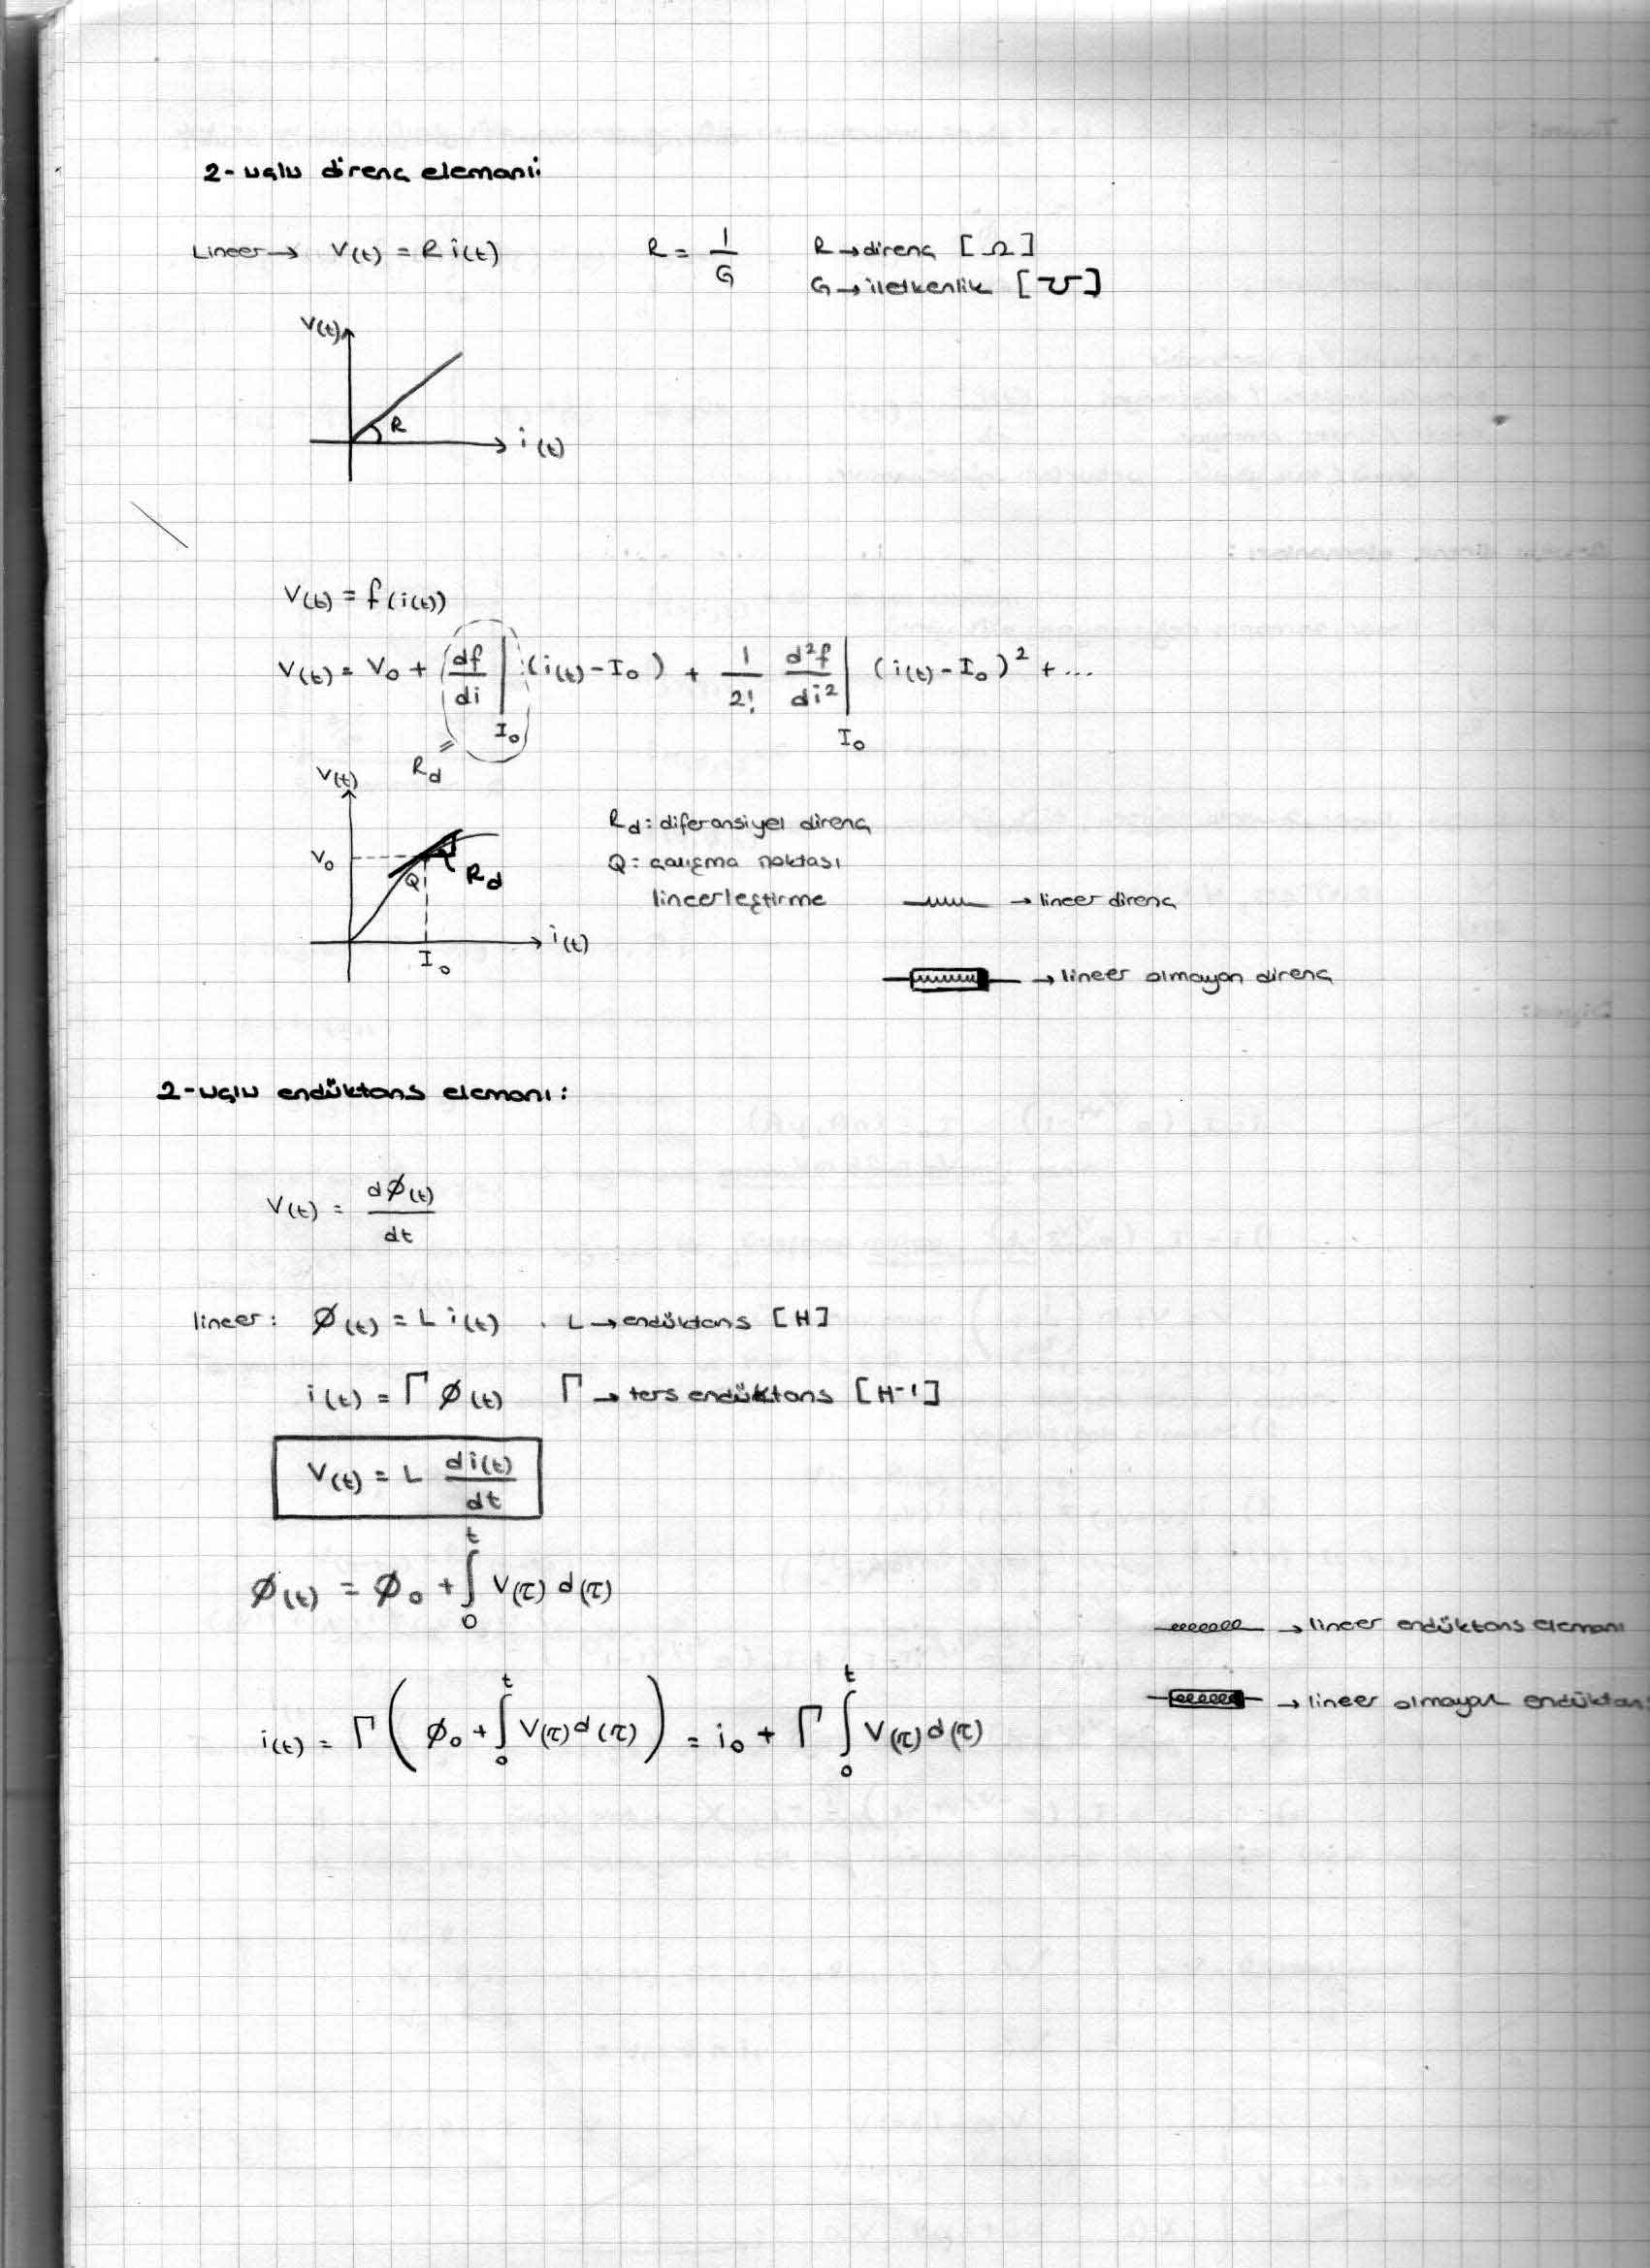 2-uçlu direnç elemanı:
Lineer→ V(t) = R i(t) R = 1/G R→direnç [Ω]
G→iletkenlik [℧]
V(t)
R
i(t)
V(t) = f(i(t))
V(t) = V₀ + df/di |I₀ (i(t) - I₀) + 1/2! d²f/di² |I₀ (i(t) - I₀)² + ...
= Rd
V(t)
V₀
Q
Rd
i(t)
I₀
Rd: diferansiyel direnç
Q: çalışma noktası
lineerleştirme
→ lineer direnç
→ lineer olmayan direnç
2-uçlu endüktans elemanı:
V(t) = dØ(t)/dt
lineer: Ø(t) = L i(t) . L→endüktans [H]
i(t) = Γ Ø(t) Γ→ters endüktans [H-1]
V(t) = L di(t)/dt
Ø(t) = Ø₀ + ∫₀ᵗ V(τ) d(τ)
→ lineer endüktans elemanı
→ lineer olmayan endüktans
i(t) = Γ ( Ø₀ + ∫₀ᵗ V(τ) d(τ) ) = i₀ + Γ ∫₀ᵗ V(τ) d(τ)